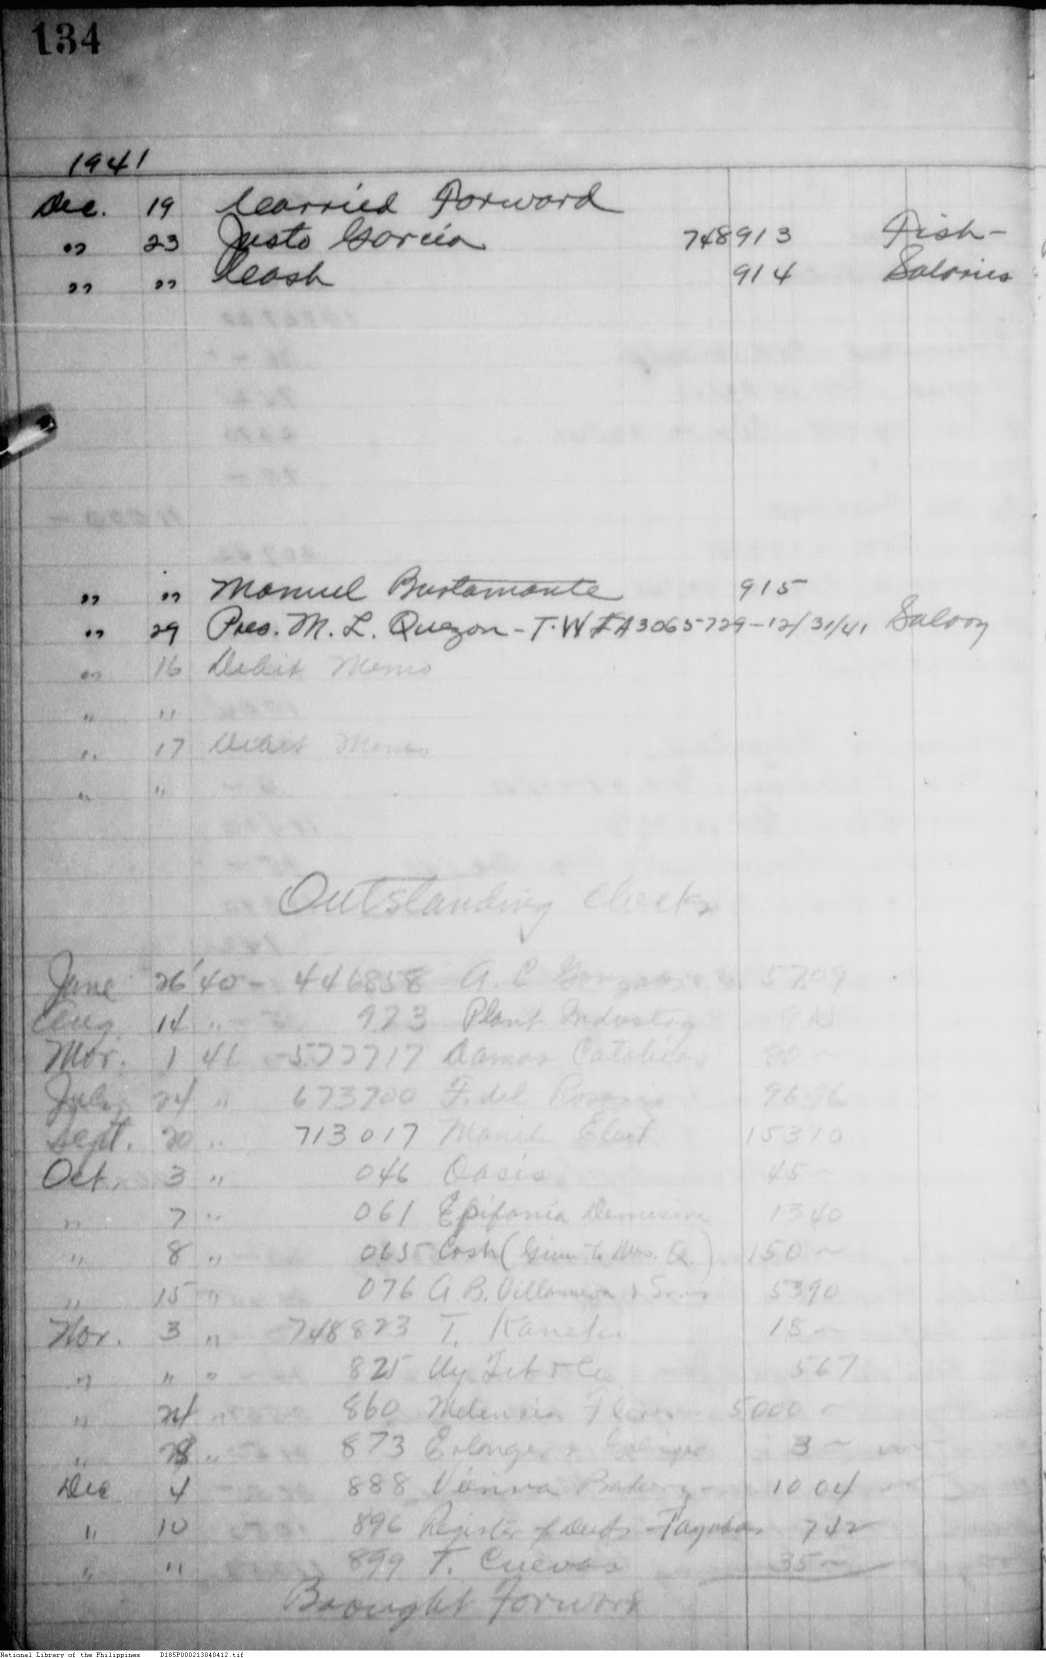 134
1941
Dec. 19 Carried Forward
" 23 Justo Garcia 748913 Fish-
" " Cash 914 Salaries
" " Manuel Bustamante 915
" 29 Pres. M. L. Quezon - T.W. #A3065729-12/31/41 Salary
" 16 Debit Memo
" "
" 17 Debit Memo
" "
Outstanding Checks
June 26 '40 - 446858 A. C. 5709
Aug. 14 " 973 Plant Industry
Mar. 1 41 - 577717 Damas Catolicas 80 -
July 24 " 673700 F. del Rosario 9696
Sept. 20 " 713017 Manila Elect. 15310
Oct. 3 " 046 Oasis 45 -
" 7 " 061 Epifania 1340
" 8 " 065 Cash (Given to Mrs. Q.) 150 -
" 15 " 076 A. B. Villanueva & Sons 5390
Nov. 3 " 748823 T. 18 -
" " " 825 Uy Tit & Co 567
" 24 " 860 5000 -
" 28 " 873 Erlanger & Galinger 3 -
Dec 4 888 Vienna Bakery 1004
" 10 896 Register of Deeds - Tayabas 742
" 11 899 T. Cuevas 35 -
Brought Forward
National Library of the Philippines D185P000213040412.tif